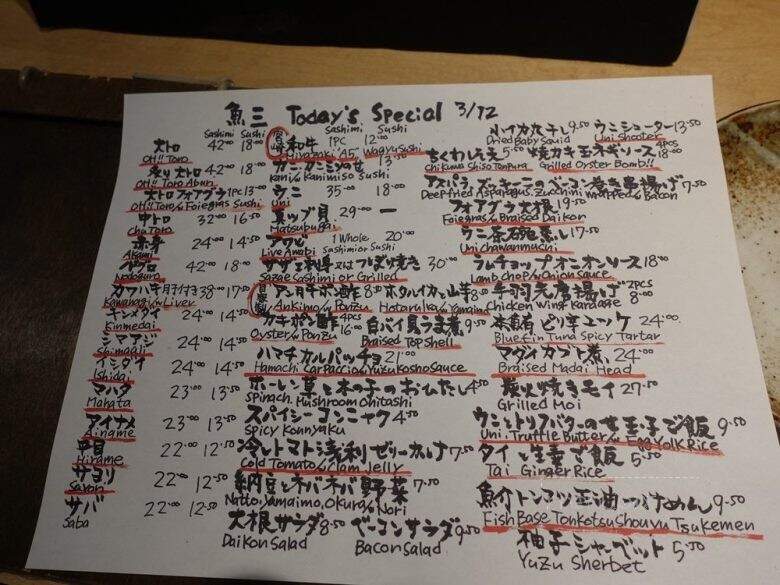 魚三 Today's Special 3/12
Sashimi Sushi
大トロ 42.00 18.00
OH!! Toro
炙り大トロ 42.00 18.00
OH!! Toro Aburi
大トロフォアグラ 1PC 13.00
OH!! Toro w/ Foiegras Sushi
中トロ 32.00 16.50
Chu Toro
赤身 24.00 14.50
Akami
42.00 18.00
Nodoguro
カワハギ肝付き 38.00 17.50
Kawahagi w/ Liver
キンメダイ 24.00 14.50
Kinmedai
シマアジ 24.00 14.50
Shimaaji
イシダイ 24.00 14.50
Ishidai
マハタ 23.00 13.50
Mahata
アイナメ 23.00 13.50
Ainame
平目 22.00 12.50
Hirame
サヨリ 22.00 12.50
Sayori
サバ 22.00 12.50
Saba
Sashimi Sushi
宮崎和牛 1PC 12.00
Miyazaki "A5" Wagyu Sushi
カニカニミソのせ 13.50
Kani w/ Kanimiso Sushi
ウニ 35.00 18.00
Uni
真ツブ貝 29.00 ー
Matsubugai
アワビ 1 Whole 20.00
Live Awabi Sashimi or Sushi
サザエ刺身又はつぼ焼き 30.00
Sazae Sashimi or Grilled
自家製 アン肝ポン酢 8.50 ホタルイカと山芋 8.50
Ankimo w/ Ponzu Hotaruika w/ Yamaimo
カキポン酢 4PCS 16.00 白バイ貝うま煮 9.50
Oyster w/ Ponzu Braised Top Shell
ハマチカルパッチョ 21.00
Hamachi Carpaccio w/ Yuzu Kosho Sauce
ホーレン草と木の子のおひたし 4.50
Spinach, Mushroom Ohitashi
スパイシーコンニャク 4.50
Spicy Konnyaku
冷しトマト浅利ゼリーがけ 7.50
Cold Tomato w/ Clam Jelly
納豆とネバネバ野菜 7.50
Natto, Yamaimo, Okura w/ Nori
大根サラダ 8.50 ベーコンサラダ 9.50
Daikon Salad Bacon Salad
小イカ丸干し 9.50 ウニシューター 13.50
Dried Baby Squid Uni Shooter
5.50 4PCS 18.00
Chikuwa Shiso Tenpura Grilled Oyster Bomb!!
アスパラ、ズッキーニのベーコン巻き串揚げ 7.50
Deep fried Asparagus, Zucchini wrapped w/ Bacon
フォアグラ大根 19.50
Foiegras w/ Braised Daikon
ウニ茶碗蒸し 17.50
Uni Chawanmushi
ラムチョップオニオンソース 18.00
Lamb Chop w/ Onion Sauce
手羽先唐揚げ 2PCS 8.00
Chicken Wing Karaage
本鮪ピリ辛ユッケ 24.00
Bluefin Tuna Spicy Tartar
マダイカブト煮 24.00
Braised Madai Head
炭火焼きモイ 27.50
Grilled Moi
ウニとトリフバターの玉子ご飯 9.50
Uni, Truffle Butter w/ Egg Yolk Rice
タイと生姜ご飯 5.50
Tai Ginger Rice
魚介トンコツ正油つけめん 9.50
Fish Base Tonkotsu Shouyu Tsukemen
柚子シャーベット 5.50
Yuzu Sherbet